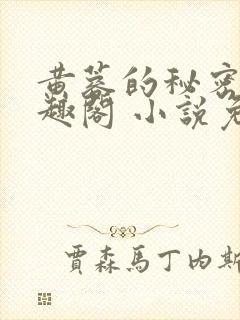 黄蓉的秘密
趣阁 小説免
賈森馬丁內斯